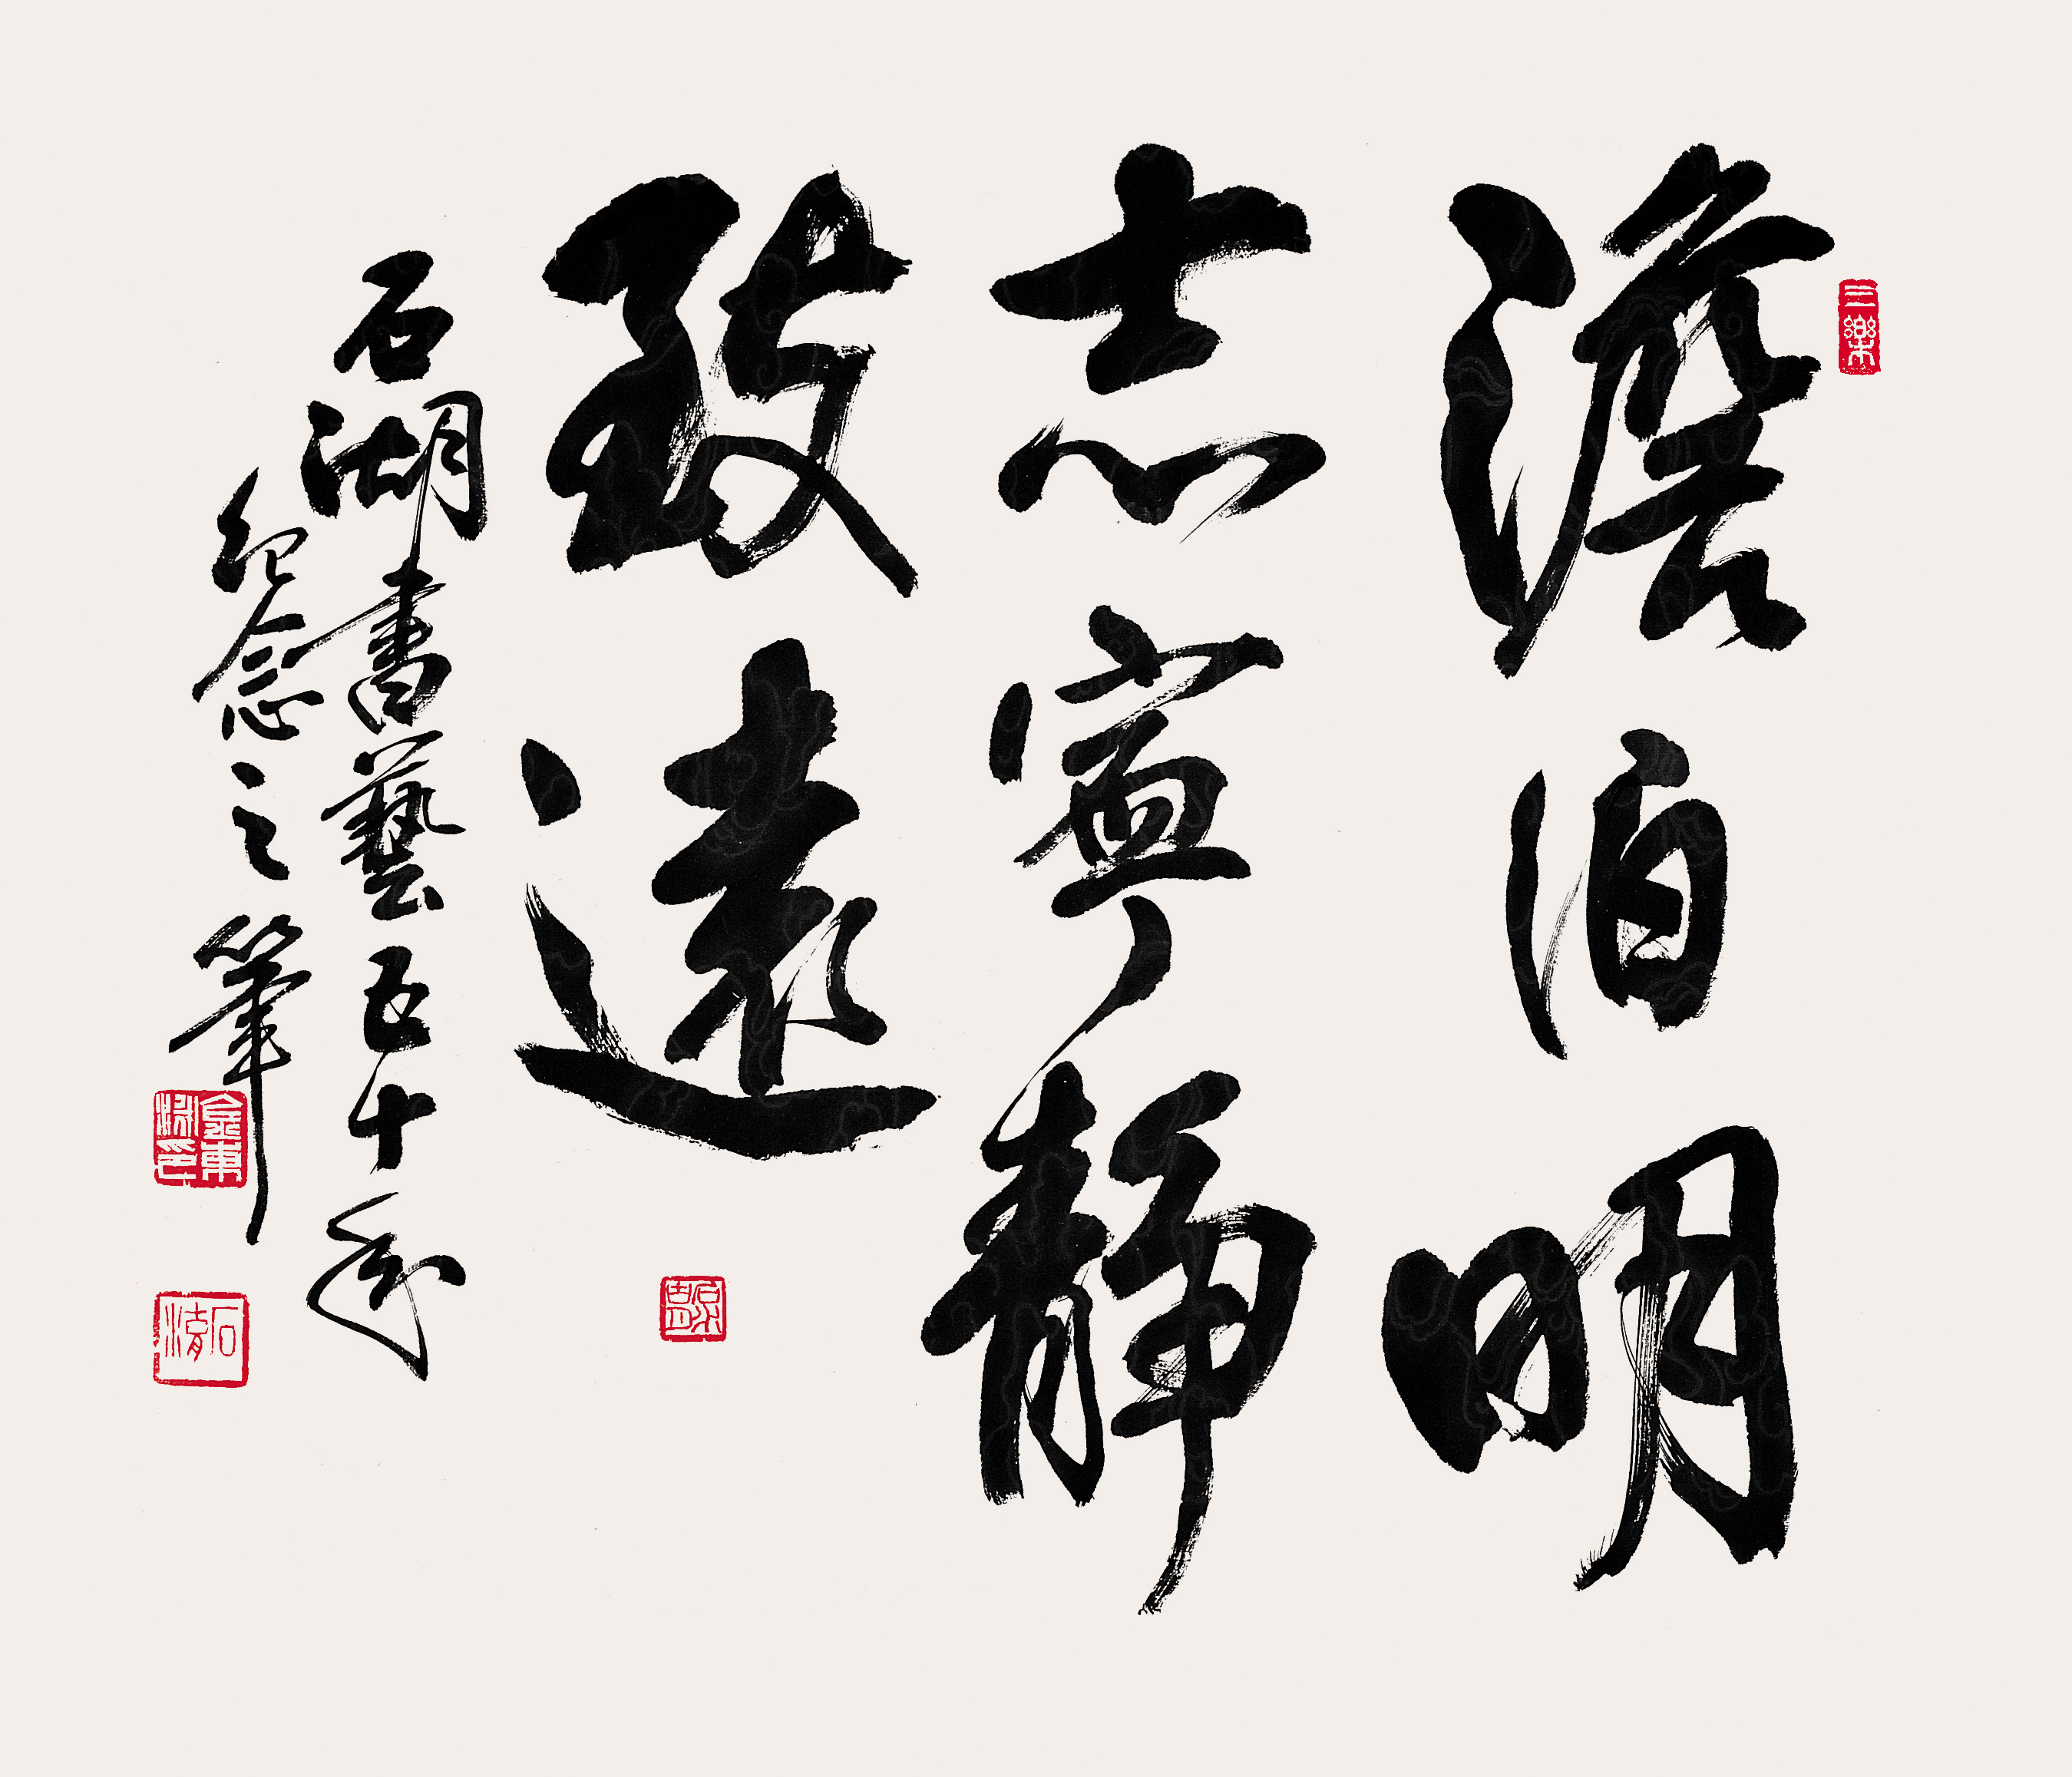 三樂
澹泊明
志寧靜
致遠
石湖書藝五十年
紀念之筆
金東泳印
石湖